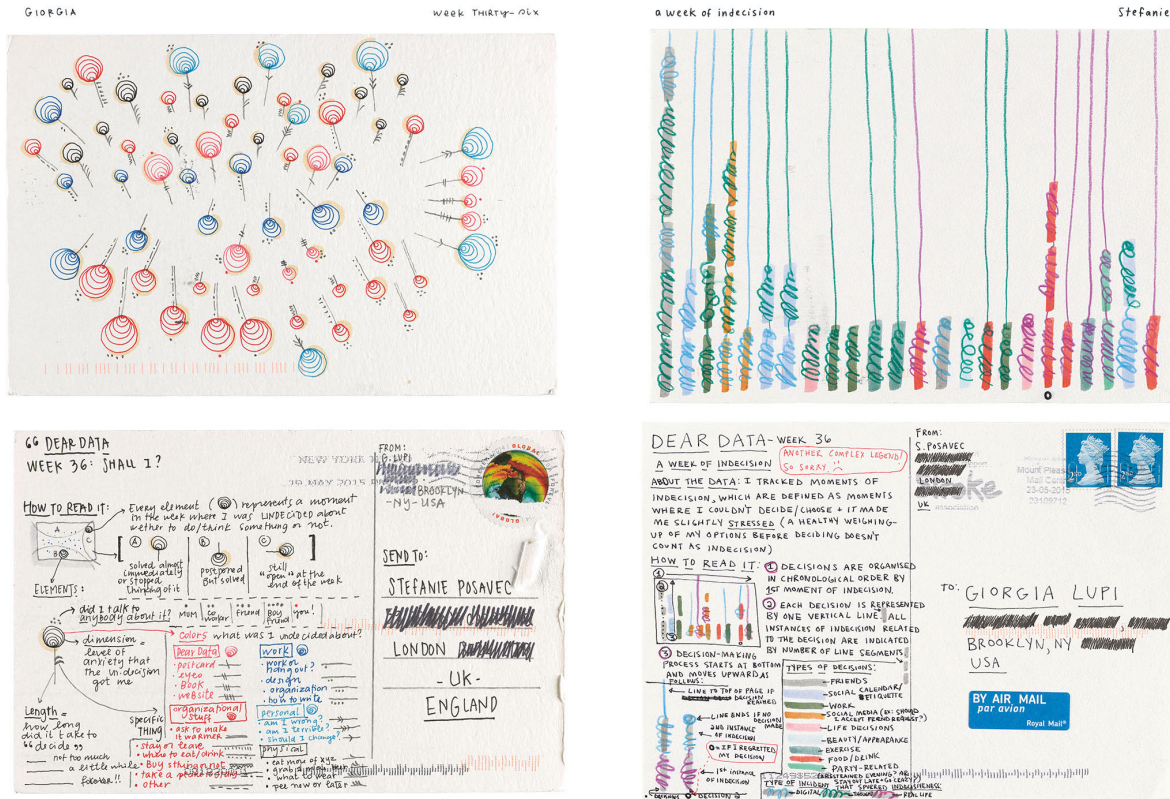 GIORGIA
WEEK THIRTY-SIX
a week of indecision
Stefanie
o
"DEAR DATA
WEEK 36: SHALL I?
HOW TO READ IT:
Every element ( ) represents a moment
in the week where I was UNDECIDED about
wether to do/think something or not.
A
B
C
A
B
C
solved almost
immediately
or stopped
thinking of it
postponed
But solved
still
"open" at the
end of the week
ELEMENTS:
did I talk to
anybody about it?
MUM
co worker
Friend
Boy friend
you!
dimension =
level of
anxiety that
the indecision
got me
Colors what was I undecided about?
Dear Data
postcard
eyeo
Book
website
organizational
stuff
ask to make
it warmer
work
work or
hang out?
design
organization
how to write
personal
am I wrong?
am I terrible?
should I change?
physical
eat more of xyz
what to wear
pee now or later
Length =
how long
did it take to
"decide"
not too much
a little while
forever!!
specific
thing
stay or leave
where to eat/drink
Buy sthing or not
other
FROM:
G. LUPI
BROOKLYN
-NY- USA
NEW YORK
29 MAY 2015
GLOBAL
SEND TO:
STEFANIE POSAVEC
LONDON
-UK-
ENGLAND
DEAR DATA- WEEK 36
A WEEK OF INDECISION
ANOTHER COMPLEX LEGEND!
SO SORRY
ABOUT THE DATA: I TRACKED MOMENTS OF
INDECISION, WHICH ARE DEFINED AS MOMENTS
WHERE I COULDN'T DECIDE/CHOOSE + IT MADE
ME SLIGHTLY STRESSED (A HEALTHY WEIGHING-
UP OF MY OPTIONS BEFORE DECIDING DOESN'T
COUNT AS INDECISION)
HOW TO READ IT:
1 DECISIONS ARE ORGANISED
IN CHRONOLOGICAL ORDER BY
1ST MOMENT OF INDECISION.
2 EACH DECISION IS REPRESENTED
BY ONE VERTICAL LINE. ALL
INSTANCES OF INDECISION RELATED
TO THE DECISION ARE INDICATED
BY NUMBER OF LINE SEGMENTS
3 DECISION-MAKING
PROCESS STARTS AT BOTTOM
AND MOVES UPWARD AS
FOLLOWS:
LINE TO TOP OF PAGE IF
DECISION
REACHED
LINE ENDS IF NO
DECISION
MADE
2ND INSTANCE
OF INDECISION
O = IF I REGRETTED
MY DECISION
1ST INSTANCE
OF INDECISION
TYPES OF DECISIONS:
FRIENDS
SOCIAL CALENDAR/
ETIQUETTE
WORK
SOCIAL MEDIA (EX: SHOULD
I ACCEPT FRIEND REQUEST?)
LIFE DECISIONS
BEAUTY/APPEARANCE
EXERCISE
FOOD/DRINK
PARTY-RELATED
(RESTRAINED EVENING? OR
STAY OUT LATE + GO CRAZY?)
TYPE OF INCIDENT
THAT SPURRED INDECISIVENESS:
DIGITAL
REAL LIFE
FROM:
S. POSAVEC
LONDON
UK
Mount Pleasant
Mail Centre
23-06-2015
association
TO:
GIORGIA LUPI
BROOKLYN, NY
USA
BY AIR MAIL
par avion
Royal Mail